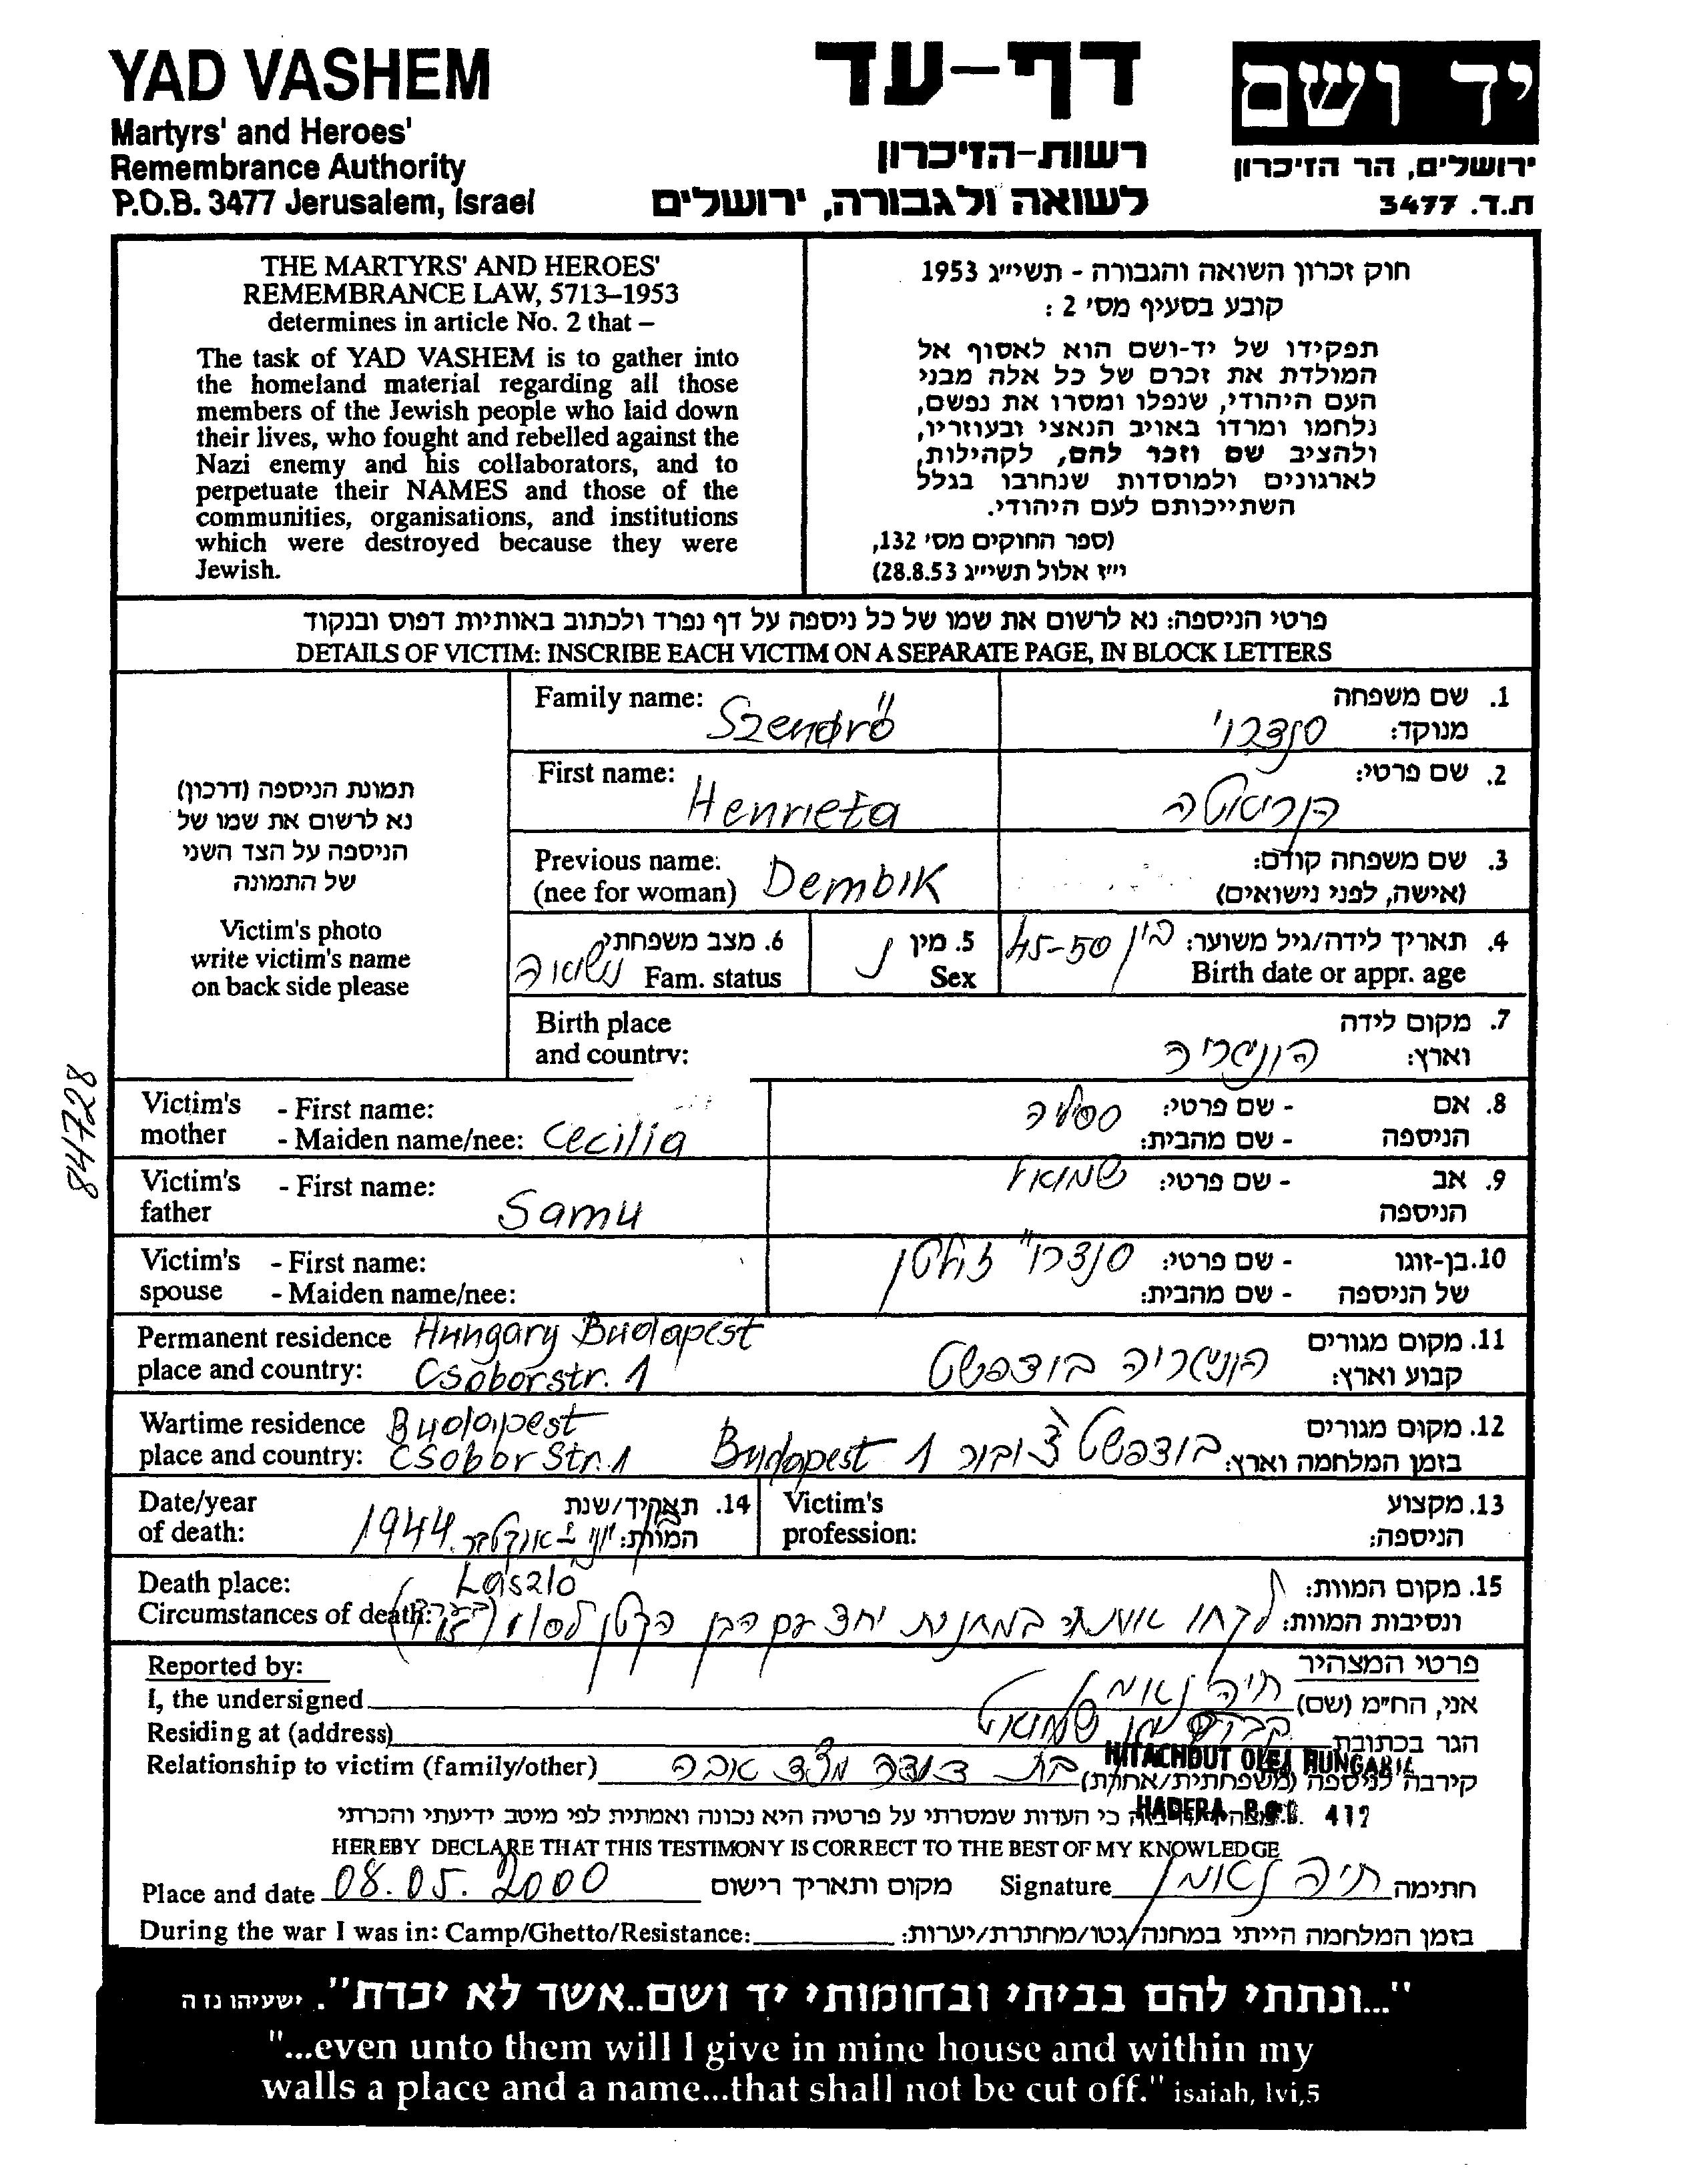 YAD VASHEM
Martyrs' and Heroes'
Remembrance Authority
P.O.B. 3477 Jerusalem, Israel
דף-עד
רשות-הזיכרון
לשואה ולגבורה, ירושלים
יד ושם
ירושלים, הר הזיכרון
ת.ד. 3477
THE MARTYRS' AND HEROES'
REMEMBRANCE LAW, 5713–1953
determines in article No. 2 that –
The task of YAD VASHEM is to gather into
the homeland material regarding all those
members of the Jewish people who laid down
their lives, who fought and rebelled against the
Nazi enemy and his collaborators, and to
perpetuate their NAMES and those of the
communities, organisations, and institutions
which were destroyed because they were
Jewish.
חוק זכרון השואה והגבורה - תשי״ג 1953
קובע בסעיף מס' 2 :
תפקידו של יד-ושם הוא לאסוף אל
המולדת את זכרם של כל אלה מבני
העם היהודי, שנפלו ומסרו את נפשם,
נלחמו ומרדו באויב הנאצי ובעוזריו,
ולהציב שם וזכר להם, לקהילות,
לארגונים ולמוסדות שנחרבו בגלל
השתייכותם לעם היהודי.
(ספר החוקים מס' 132,
י״ז אלול תשי״ג 28.8.53)
פרטי הניספה: נא לרשום את שמו של כל ניספה על דף נפרד ולכתוב באותיות דפוס ובנקוד
DETAILS OF VICTIM: INSCRIBE EACH VICTIM ON A SEPARATE PAGE, IN BLOCK LETTERS
תמונת הניספה (דרכון)
נא לרשום את שמו של
הניספה על הצד השני
של התמונה
Victim's photo
write victim's name
on back side please
Family name: Szendrő
1. שם משפחה
מנוקד: סנדרוי
First name: Henrieta
2. שם פרטי: הנריאטה
Previous name:
(nee for woman) Dembik
3. שם משפחה קודם:
(אישה, לפני נישואים)
4. תאריך לידה/גיל משוער: בין 45-50
Birth date or appr. age
5. מין נ
Sex
6. מצב משפחתי נשואה
Fam. status
Birth place
and country:
7. מקום לידה
וארץ: הונגריה
Victim's mother
- First name:
- Maiden name/nee: Cecilia
8. אם הניספה
- שם פרטי: ססיליה
- שם מהבית:
Victim's father
- First name: Samu
9. אב הניספה
- שם פרטי: שמואל
Victim's spouse
- First name:
- Maiden name/nee:
10. בן-זוגו של הניספה
- שם פרטי: סנדרוי זולטן
- שם מהבית:
Permanent residence Hungary Budapest
place and country: Csobor str. 1
11. מקום מגורים
קבוע וארץ: הונגריה בודפשט
Wartime residence Budapest
place and country: Csobor Str. 1
12. מקום מגורים
בזמן המלחמה וארץ: בודפשט צ'ובור 1 Budapest
Date/year
of death:
14. תאריך/שנת
המוות: יוני - אוקטובר 1944
Victim's
profession:
13. מקצוע
הניספה:
Death place:
Circumstances of death:
László
15. מקום המוות:
ונסיבות המוות: לקחו אותה במחנות יחד עם הבן הקטן לסלו
Reported by:
פרטי המצהיר
I, the undersigned
אני, הח״מ (שם) חיה נאומן
Residing at (address)
הגר בכתובת
Relationship to victim (family/other)
קירבה לניספה (משפחתית/אחרת) בת דודה מצד אבא
HITACHDUT OLEJ HUNGARIA
HADERA P.O.B. 417
כי העדות שמסרתי על פרטיה היא נכונה ואמתית לפי מיטב ידיעתי והכרתי
HEREBY DECLARE THAT THIS TESTIMONY IS CORRECT TO THE BEST OF MY KNOWLEDGE
Place and date 08.05.2000 מקום ותאריך רישום
Signature חיה נאומן חתימה
During the war I was in: Camp/Ghetto/Resistance:
בזמן המלחמה הייתי במחנה/גטו/מחתרת/יערות:
84728
"...ונתתי להם בביתי ובחומותי יד ושם..אשר לא יכרת". ישעיהו נו ה
"...even unto them will I give in mine house and within my
walls a place and a name...that shall not be cut off." isaiah, lvi,5